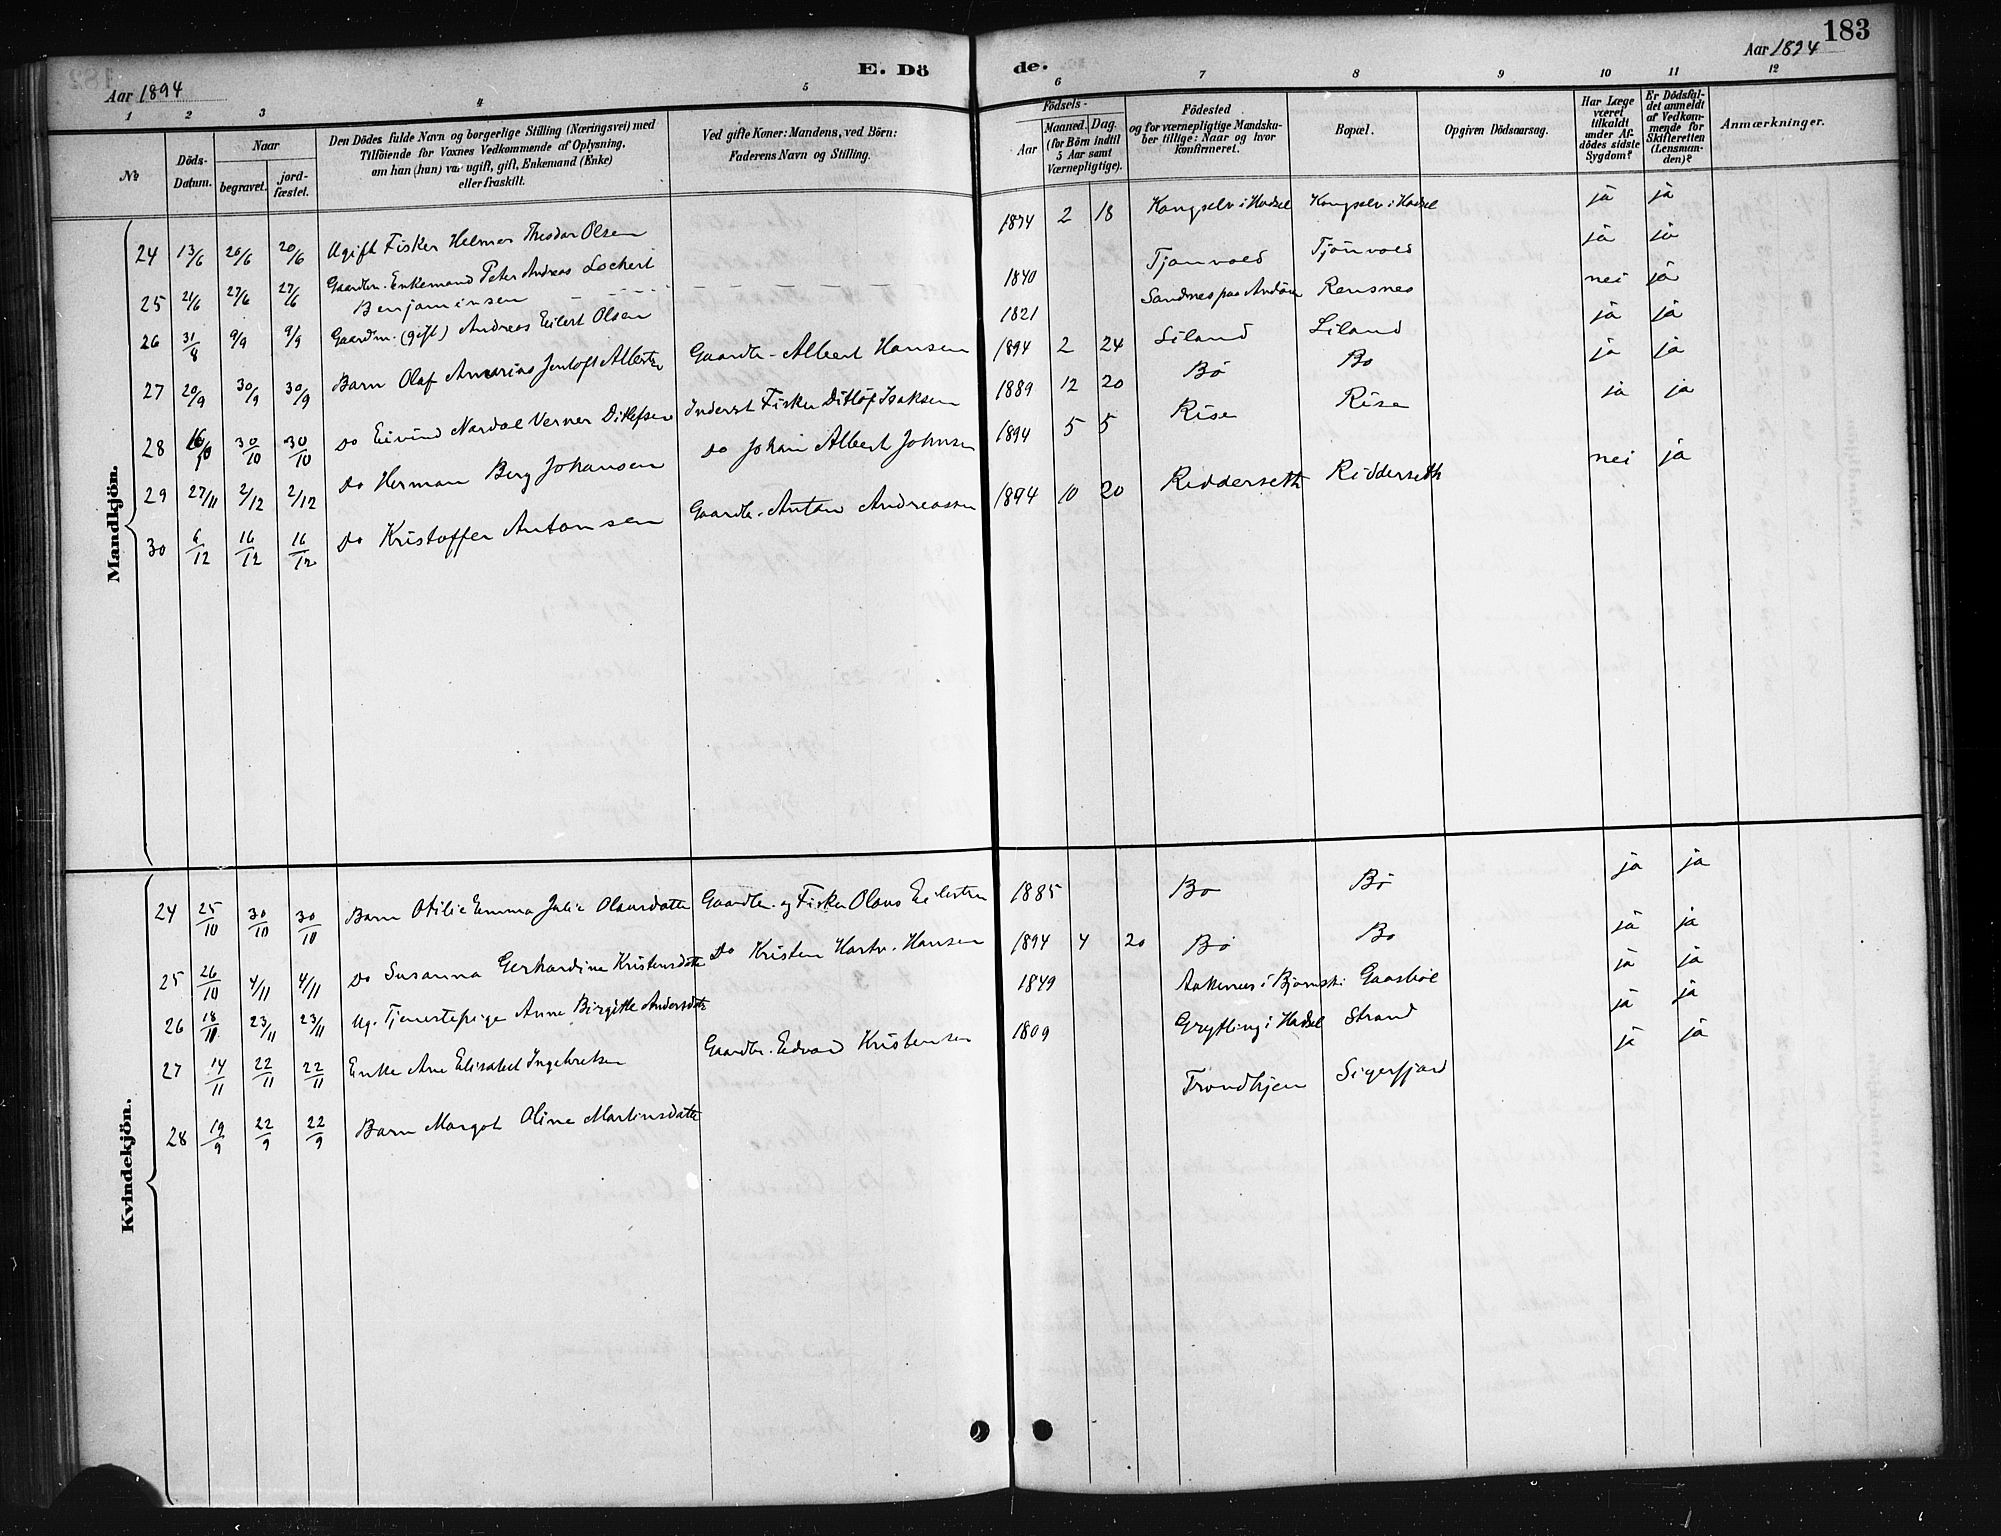 183
Aar 1894
E. Dö
de.
Aar 1894
1 2 3 4 5 6 7 8 9 10 11 12
No
Döds-Datum.
Naar
begravet.
jord-fæstet.
Den Dödes fulde Navn og borgerlige Stilling (Næringsvei) med
Tilföiende for Voxnes Vedkommende af Oplysning,
om han (hun) var ugift, gift, Enkemand (Enke)
eller fraskilt.
Ved gifte Koner: Mandens, ved Börn:
Faderens Navn og Stilling.
Födsels-
Aar
Maaned. Dag.
(for Börn indtil
5 Aar samt
Værnepligtige).
Födested
og for værnepligtige Mandska-
ber tillige: Naar og hvor
konfirmeret.
Bopæl.
Opgiven Dödsaarsag.
Har Læge
været
tilkaldt
under Af-
dödes sidste
Sygdom?
Er Dödsfal-
det anmeldt
af Vedkom-
mende for
Skifteretten
(Lensman-
den)?
Anmærkninger.
Mandkjön.
24 13/6 20/6 20/6 Ugift Fisker Helmer Theodor Olsen 1874 2 18 Kongselv i Hadsel Kongselv i Hadsel ja ja
25 21/6 27/6 27/6 Gaardbr. Enkemand Peter Andreas Lockert 1840 Tjønvold Tjønvold ja ja
Benjaminsen
26 31/8 9/9 9/9 Gaardm. (gift) Andreas Eilert Olsen 1821 Sandnes paa Andøen Rensnes nei ja
27 20/9 30/9 30/9 Barn Olaf Amarias Jentoft Albertsen Gaardbr. Albert Hansen 1894 2 24 Liland Liland ja ja
28 16/10 30/10 30/10 Do Eivind Nordal Verner Ditlefsen Inderst Fisker Ditlöf Isaksen 1889 12 20 Bö Bö ja ja
29 27/11 2/12 2/12 Do Herman Berg Johansen Do Johan Albert Johnsen 1894 5 5 Rise Rise ja ja
30 6/12 16/12 16/12 Do Kristoffer Antonsen Gaardbr. Anton Andreassen 1894 10 20 Ridderseth Ridderseth nei ja
Kvindekjön.
24 25/10 30/10 30/10 Barn Otilie Emma Julie Olausdatter Gaardbr. og Fisker Olaus Eilertsen 1885 Bö Bö ja ja
25 26/10 4/11 4/11 Do Susanna Gerhardine Kristensdatter Do Kristen Hartv. Hansen 1894 4 20 Bö Bö ja ja
26 18/11 23/11 23/11 Ug. Tjenestepige Anne Birgitte Andersdatter 1849 Aakernes i Bjørnsk. Gaasbøl ja ja
27 14/11 22/11 22/11 Enke Ane Elisabet Ingebretsen 1809 Grytting i Hadsel Strand ja ja
28 19/9 22/9 22/9 Barn Margot Oline Martinsdatter Gaardbr. Edvard Kristensen Trondhjem Sigerfjord ja ja